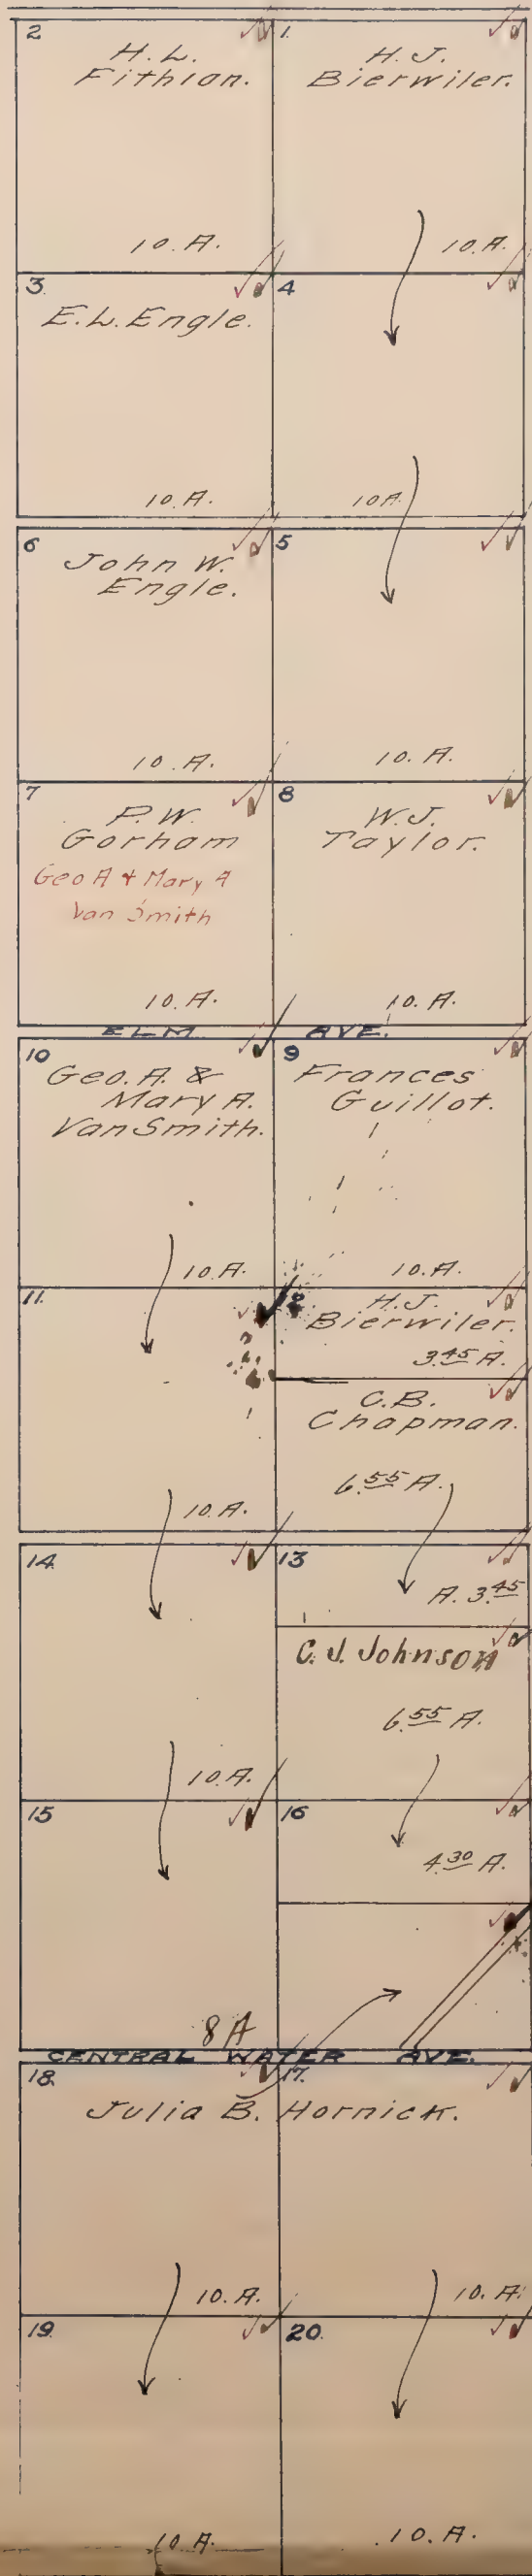 2
H. L.
Fithian.
10. A.
1.
H. J.
Bierwiler.
10. A.
3.
E. L. Engle.
10. A.
4
10 A
6
John W.
Engle.
10. A.
5
10. A.
7
P. W.
Gorham
Geo A & Mary A
Van Smith
10. A.
8
W. J.
Taylor.
10. A.
ELM AVE.
10
Geo. A. &
Mary A.
Van Smith.
10. A.
9
Frances
Guillot.
10. A.
11.
10. A.
H. J.
Bierwiler.
3.45 A.
C. B.
Chapman.
6.55 A.
14.
10. A.
13
A. 3.45
C. J. Johnson
6.55 A.
15
8 A
16
4.30 A.
CENTRAL WATER AVE.
18.
17.
Julia B. Hornick.
10. A.
10. A.
19.
10. A.
20.
10. A.